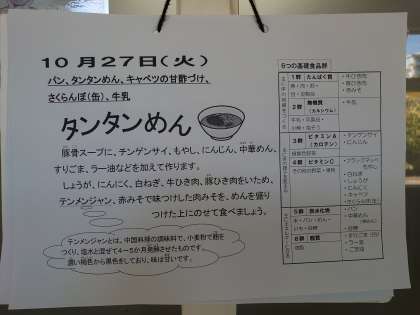 10月27日(火)
パン、タンタンめん、キャベツの甘酢づけ、
さくらんぼ(缶)、牛乳
タンタンめん
豚骨スープに、チンゲンサイ、もやし、にんじん、中華めん、
すりごま、ラー油などを加えて作ります。
しょうが、にんにく、白ねぎ、牛ひき肉、豚ひき肉をいため、
テンメンジャン、赤みそで味つけした肉みそを、めんを盛り
つけた上にのせて食べましょう。
テンメンジャンとは、中国料理の調味料で、小麦粉で麹を
つくり、塩水と混ぜて4～5か月発酵させたものです。
濃い褐色から黒色をしており、味は甘いです。
6つの基礎食品群
1群 たんぱく質
・牛ひき肉
・豚ひき肉
・赤みそ
2群 無機質
(カルシウム)
・牛乳
3群 ビタミンA
(カロテン)
・チンゲンサイ
・にんじん
緑黄色野菜
4群 ビタミンC
・白ねぎ
・しょうが
・にんにく
・キャベツ
5群 炭水化物
・パン
・中華めん
・砂糖
6群 脂質
・ラー油
・ごま油